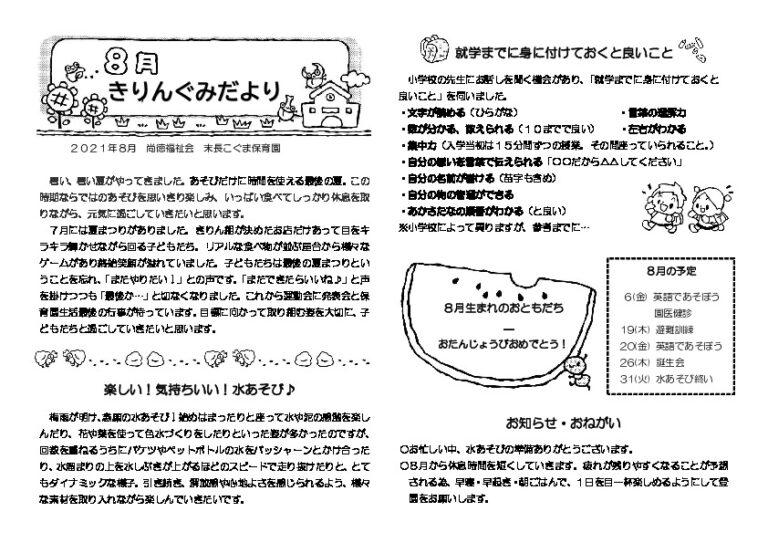 8月
きりんぐみだより
2021年8月　尚徳福祉会　末長こぐま保育園
暑い、暑い夏がやってきました。あそびだけに時間を使える最後の夏。この
時期ならではのあそびを思いきり楽しみ、いっぱい食べてしっかり休息を取
りながら、元気に過ごしていきたいと思います。
7月には夏まつりがありました。きりん組が決めたお店だけあって目をキ
ラキラ輝かせながら回る子どもたち。リアルな食べ物が並ぶ屋台から様々な
ゲームがあり終始笑顔が溢れていました。子どもたちは最後の夏まつりとい
うことを忘れ、「またやりたい！」との声です。「またできたらいいね♪」と声
を掛けつつも「最後か…」と切なくなりました。これから運動会に発表会と保
育園生活最後の行事が待っています。目標に向かって取り組む姿を大切に、子
どもたちと過ごしていきたいと思います。
楽しい！気持ちいい！水あそび♪
梅雨が明け、念願の水あそび！始めはまったりと座って水や泥の感触を楽し
んだり、花や葉を使って色水づくりをしたりといった姿が多かったのですが、
回数を重ねるうちにバケツやペットボトルの水をバッシャーンとかけ合った
り、水溜まりの上を水しぶきが上がるほどのスピードで走り抜けたりと、とて
もダイナミックな様子。引き続き、解放感や心地よさを感じられるよう、様々
な素材を取り入れながら楽しんでいきたいです。
就学までに身に付けておくと良いこと
小学校の先生にお話しを聞く機会があり、「就学までに身に付けておくと
良いこと」を伺いました。
・文字が読める（ひらがな）　・言葉の理解力
・数が分かる、数えられる（10までで良い）　・左右がわかる
・集中力（入学当初は15分間ずつの授業。その間座っていられること。）
・自分の思いを言葉で伝えられる「〇〇だから△△してください」
・自分の名前が書ける（苗字もきめ）
・自分の物の管理ができる
・あかさたなの順番がわかる（と良い）
※小学校によって異りますが、参考までに…
8月生まれのおともだち
ー
おたんじょうびおめでとう！
8月の予定
6(金) 英語であそぼう
園医健診
19(木) 避難訓練
20(金) 英語であそぼう
26(木) 誕生会
31(火) 水あそび終い
お知らせ・おねがい
〇お忙しい中、水あそびの準備ありがとうございます。
〇8月から休息時間を短くしていきます。疲れが残りやすくなることが予想
される為、早寝・早起き・朝ごはんで、1日を目一杯楽しめるようにして登
園をお願いします。